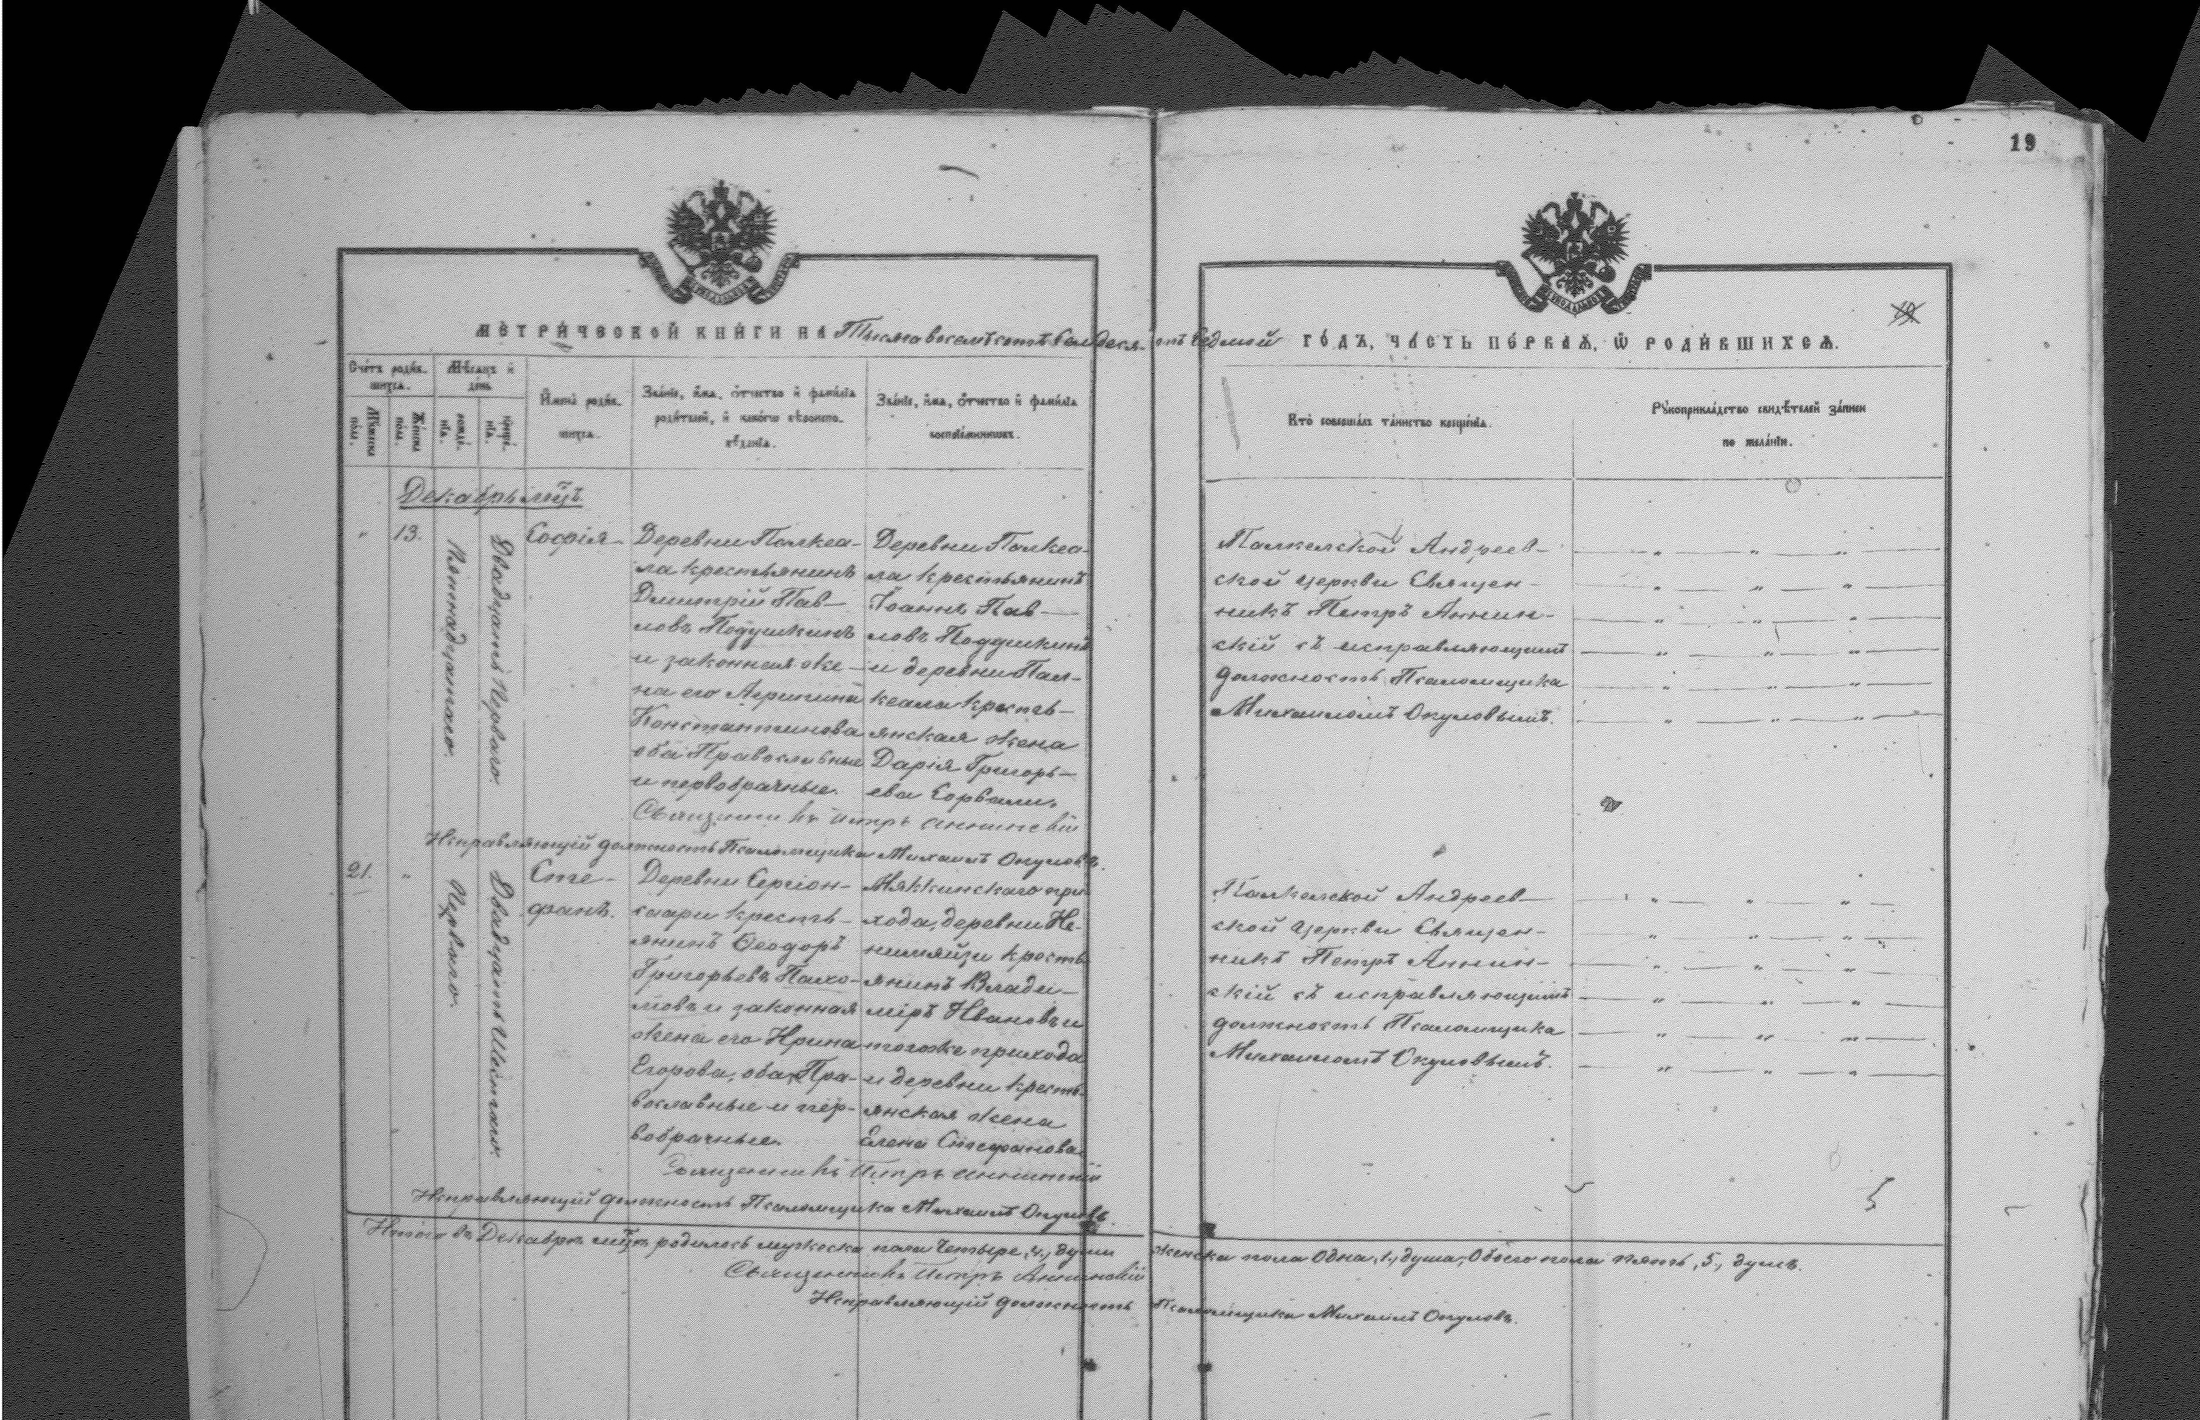 19
МЕТРИЧЕСКОЙ КНИГИ НА Тысяча восемьсотъ семьдеся- тъ седмой ГОДЪ, ЧАСТЬ ПЕРВАЯ, Ѡ РОДИВШИХСЯ.
19
Счетъ родив-
шихся.
Мужеска
пола.
Женска
пола.
Мѣсяцъ и
день
рожде-
нія.
креще-
нія.
Имена родив-
шихся.
Званіе, имя, отчество и фамилія
родителей, и какого вѣроиспо-
вѣданія.
Званіе, имя, отчество и фамилія
воспріемниковъ.
Кто совершалъ таинство крещенія.
Рукоприкладство свидѣтелей записи
по желанію.
Декабрь мцъ
"
13.
Пятнадцатаго.
Двадцать Перваго.
Софія
Деревни Палкеа-
ла крестьянинъ
Димитрій Пав-
ловъ Подушкинъ
и законная же-
на его Агрипина
Константинова
оба Православные
и первобрачные.
Деревни Палкеа-
ла крестьянинъ
Іоаннъ Пав-
ловъ Подушкинъ
и деревни Пал-
кеала кресть-
янская жена
Дарія Григорь-
ева Сорвали.
Палкельской Андреев-
ской церкви Священ-
никъ Петръ Аннин-
скій съ исправляющимъ
должность Псаломщика
Михаиломъ Окуловымъ.
Священникъ Петръ Аннинскій
Исправляющій должность Псаломщика Михаилъ Окуловъ.
21.
"
Перваго.
Двадцать Шестаго.
Сте-
фанъ.
Деревни Сергіон-
саари кресть-
янинъ Ѳеодоръ
Григорьевъ Пахо-
мовъ и законная
жена его Ирина
Егорова, оба Пра-
вославные и пер-
вобрачные.
Мяккинскаго при-
хода, деревни Не-
нимяйзи кресть-
янинъ Влади-
міръ Ивановъ и
тогоже прихода
и деревни кресть-
янская жена
Елена Стефанова.
Палкельской Андреев-
ской церкви Священ-
никъ Петръ Аннин-
скій съ исправляющимъ
должность Псаломщика
Михаиломъ Окуловымъ.
Священникъ Петръ Аннинскій
Исправляющій должность Псаломщика Михаилъ Окуловъ.
Итого въ Декабрѣ мцѣ родилось мужеска пола Четыре, 4, души женска пола Одна, 1, душа, Обоего пола пять, 5, душъ.
Священникъ Петръ Аннинскій
Исправляющій должность Псаломщика Михаилъ Окуловъ.